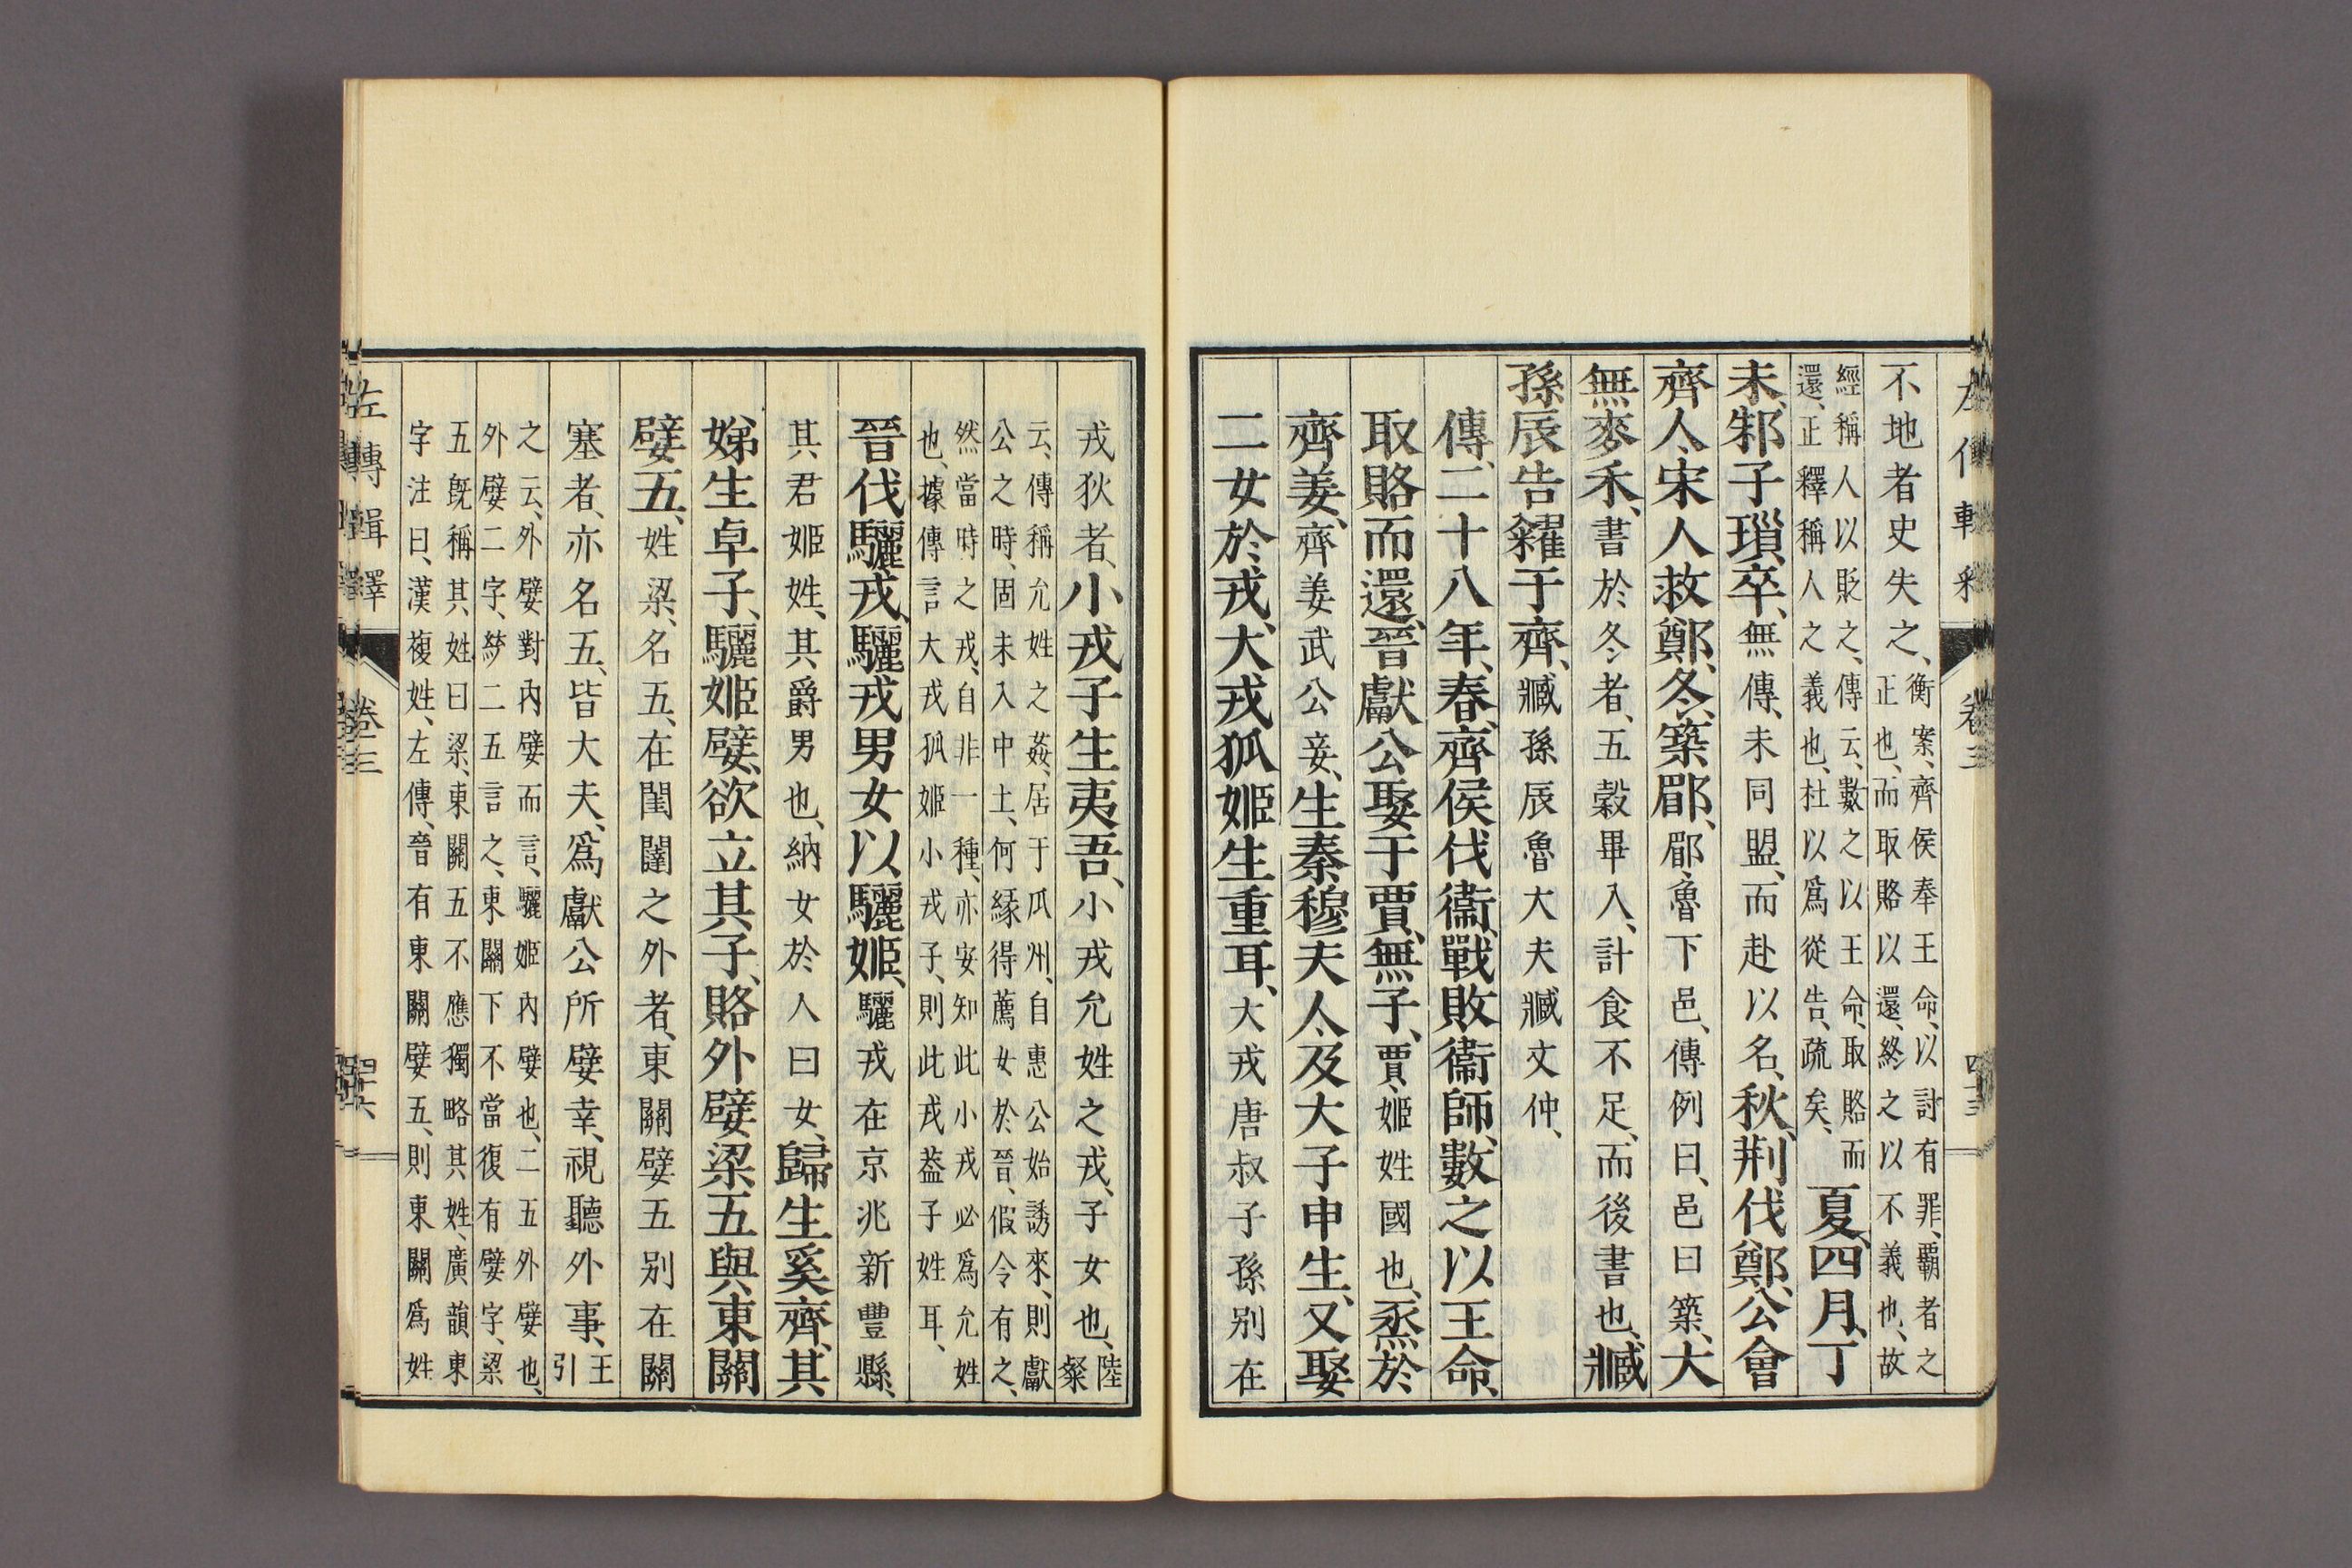 左傳輯釋 卷三
不地者史失之、衡案、齊侯奉王命、以討有罪、覇者之
正也、而取賂以還、終之以不義也、故
經稱人以貶之、傳云、數之以王命、取賂而
還、正釋稱人之義也、杜以爲從告、疏矣、夏、四月、丁
未、邾子瑣卒、無傳、未同盟、而赴以名、秋、荆伐鄭、公會
齊人、宋人救鄭、冬、築郿、郿、魯下邑、傳例曰、邑曰築、大
無麥禾、書於冬者、五穀畢入、計食不足、而後書也、臧
孫辰告糴于齊、臧孫辰魯大夫臧文仲、
傳、二十八年、春、齊侯伐衞、戰敗衞師、數之以王命、
取賂而還、晉獻公娶于賈、無子、賈、姬姓國也、烝於
齊姜、齊姜武公妾、生秦穆夫人、及大子申生、又娶
二女於戎、大戎狐姬生重耳、大戎唐叔子孫別在
戎狄者、小戎子生夷吾、小戎允姓之戎、子女也、陸
粲
云、傳稱允姓之姦、居于瓜州、自惠公始誘來、則獻
公之時、固未入中土、何緣得薦女於晉、假令有之、
然當時之戎、自非一種、亦安知此小戎必爲允姓
也、據傳言大戎狐姬小戎子、則此戎葢子姓耳、
晉伐驪戎、驪戎男女以驪姬、驪戎在京兆新豐縣、
其君姬姓、其爵男也、納女於人曰女、歸生奚齊、其
娣生卓子、驪姬嬖、欲立其子、賂外嬖梁五、與東關
嬖五、姓梁、名五、在閨闥之外者、東關嬖五別在關
塞者、亦名五、皆大夫、爲獻公所嬖幸、視聽外事、王
引
之云、外嬖對內嬖而言、驪姬內嬖也、二五外嬖也、
外嬖二字、統二五言之、東關下不當復有嬖字、梁
五旣稱其姓曰梁、東關五不應獨略其姓、廣韻東
字注曰、漢複姓、左傳、晉有東關嬖五、則東關爲姓
左傳輯釋 卷三